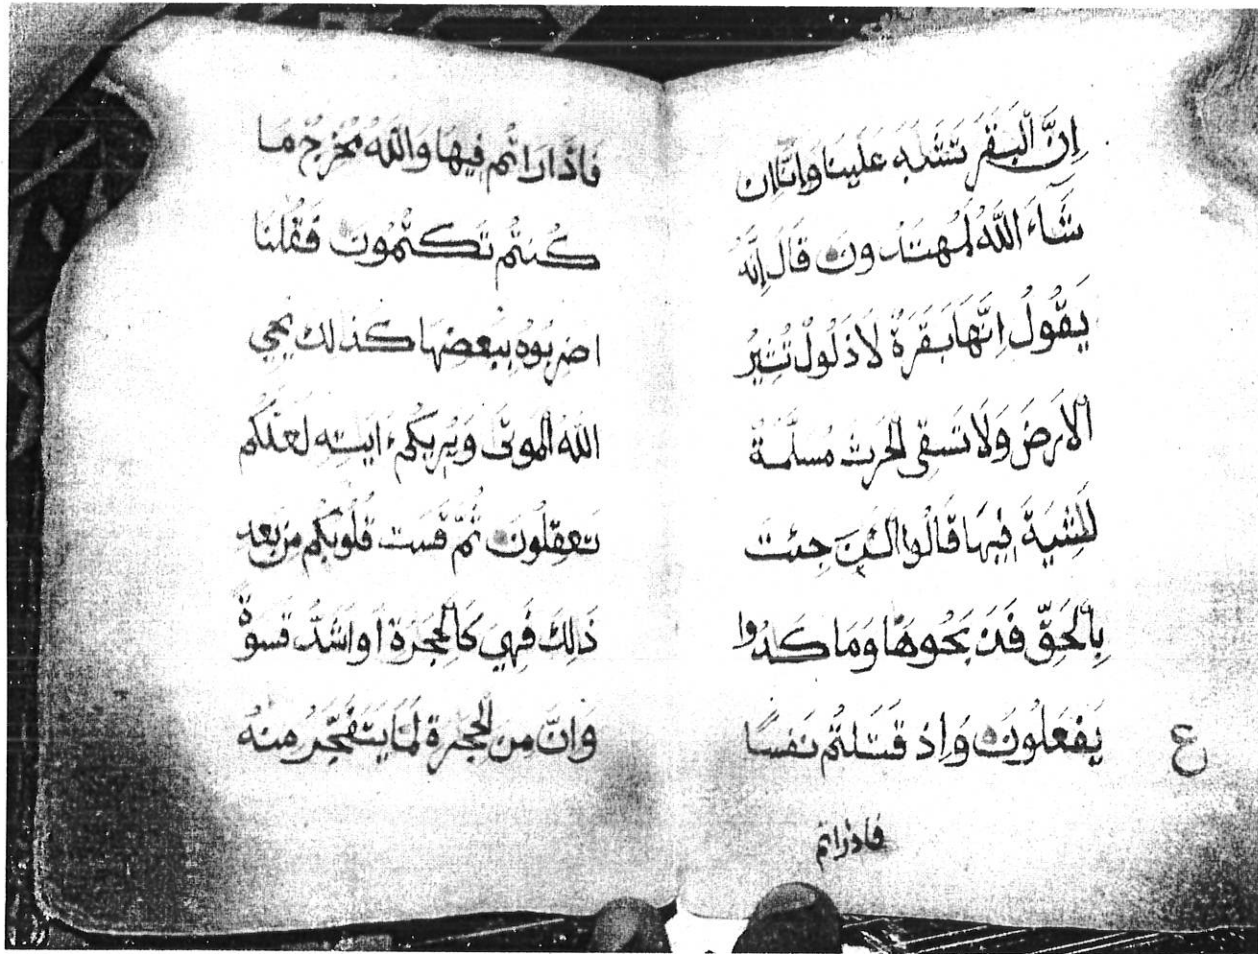 اِنَّ الْبَقَرَ تَشَٰبَهَ عَلَينَا وَاِنَّا اِن
شَآءَ اللّٰهُ لَمُهتَدُونَ قَالَ اِنَّهُ
يَقُولُ اِنَّهَا بَقَرَةٌ لَاذَلُولٌ تُثِيرُ
الْاَرضَ وَلَا تَسقِى الْحَرثَ مُسَلَّمَةٌ
لَاشِيَةَ فِيهَا قَالُوا الْـٰٔنَ جِئتَ
بِالْحَقِّ فَذَبَحُوهَا وَمَا كَادُوا
يَفعَلُونَ وَاِذ قَتَلتُم نَفسًا
ع
فادّٰراتم
فَادّارَاتُم فِيهَا وَاللّٰهُ مُخرِجٌ مَا
كُنتُم تَكتُمُونَ فَقُلنَا
اضرِبُوهُ بِبَعضِهَا كَذٰلِكَ يُحيِ
اللّٰهُ الْمَوتٰى وَيُرِيكُم ءَايٰتِهِ لَعَلَّكُم
تَعقِلُونَ ثُمَّ قَسَت قُلُوبُكُم مِن بَعدِ
ذٰلِكَ فَهِيَ كَالْحِجَارَةِ اَو اَشَدُّ قَسوَةً
وَاِنَّ مِنَ الْحِجَارَةِ لَمَا يَتَفَجَّرُ مِنهُ